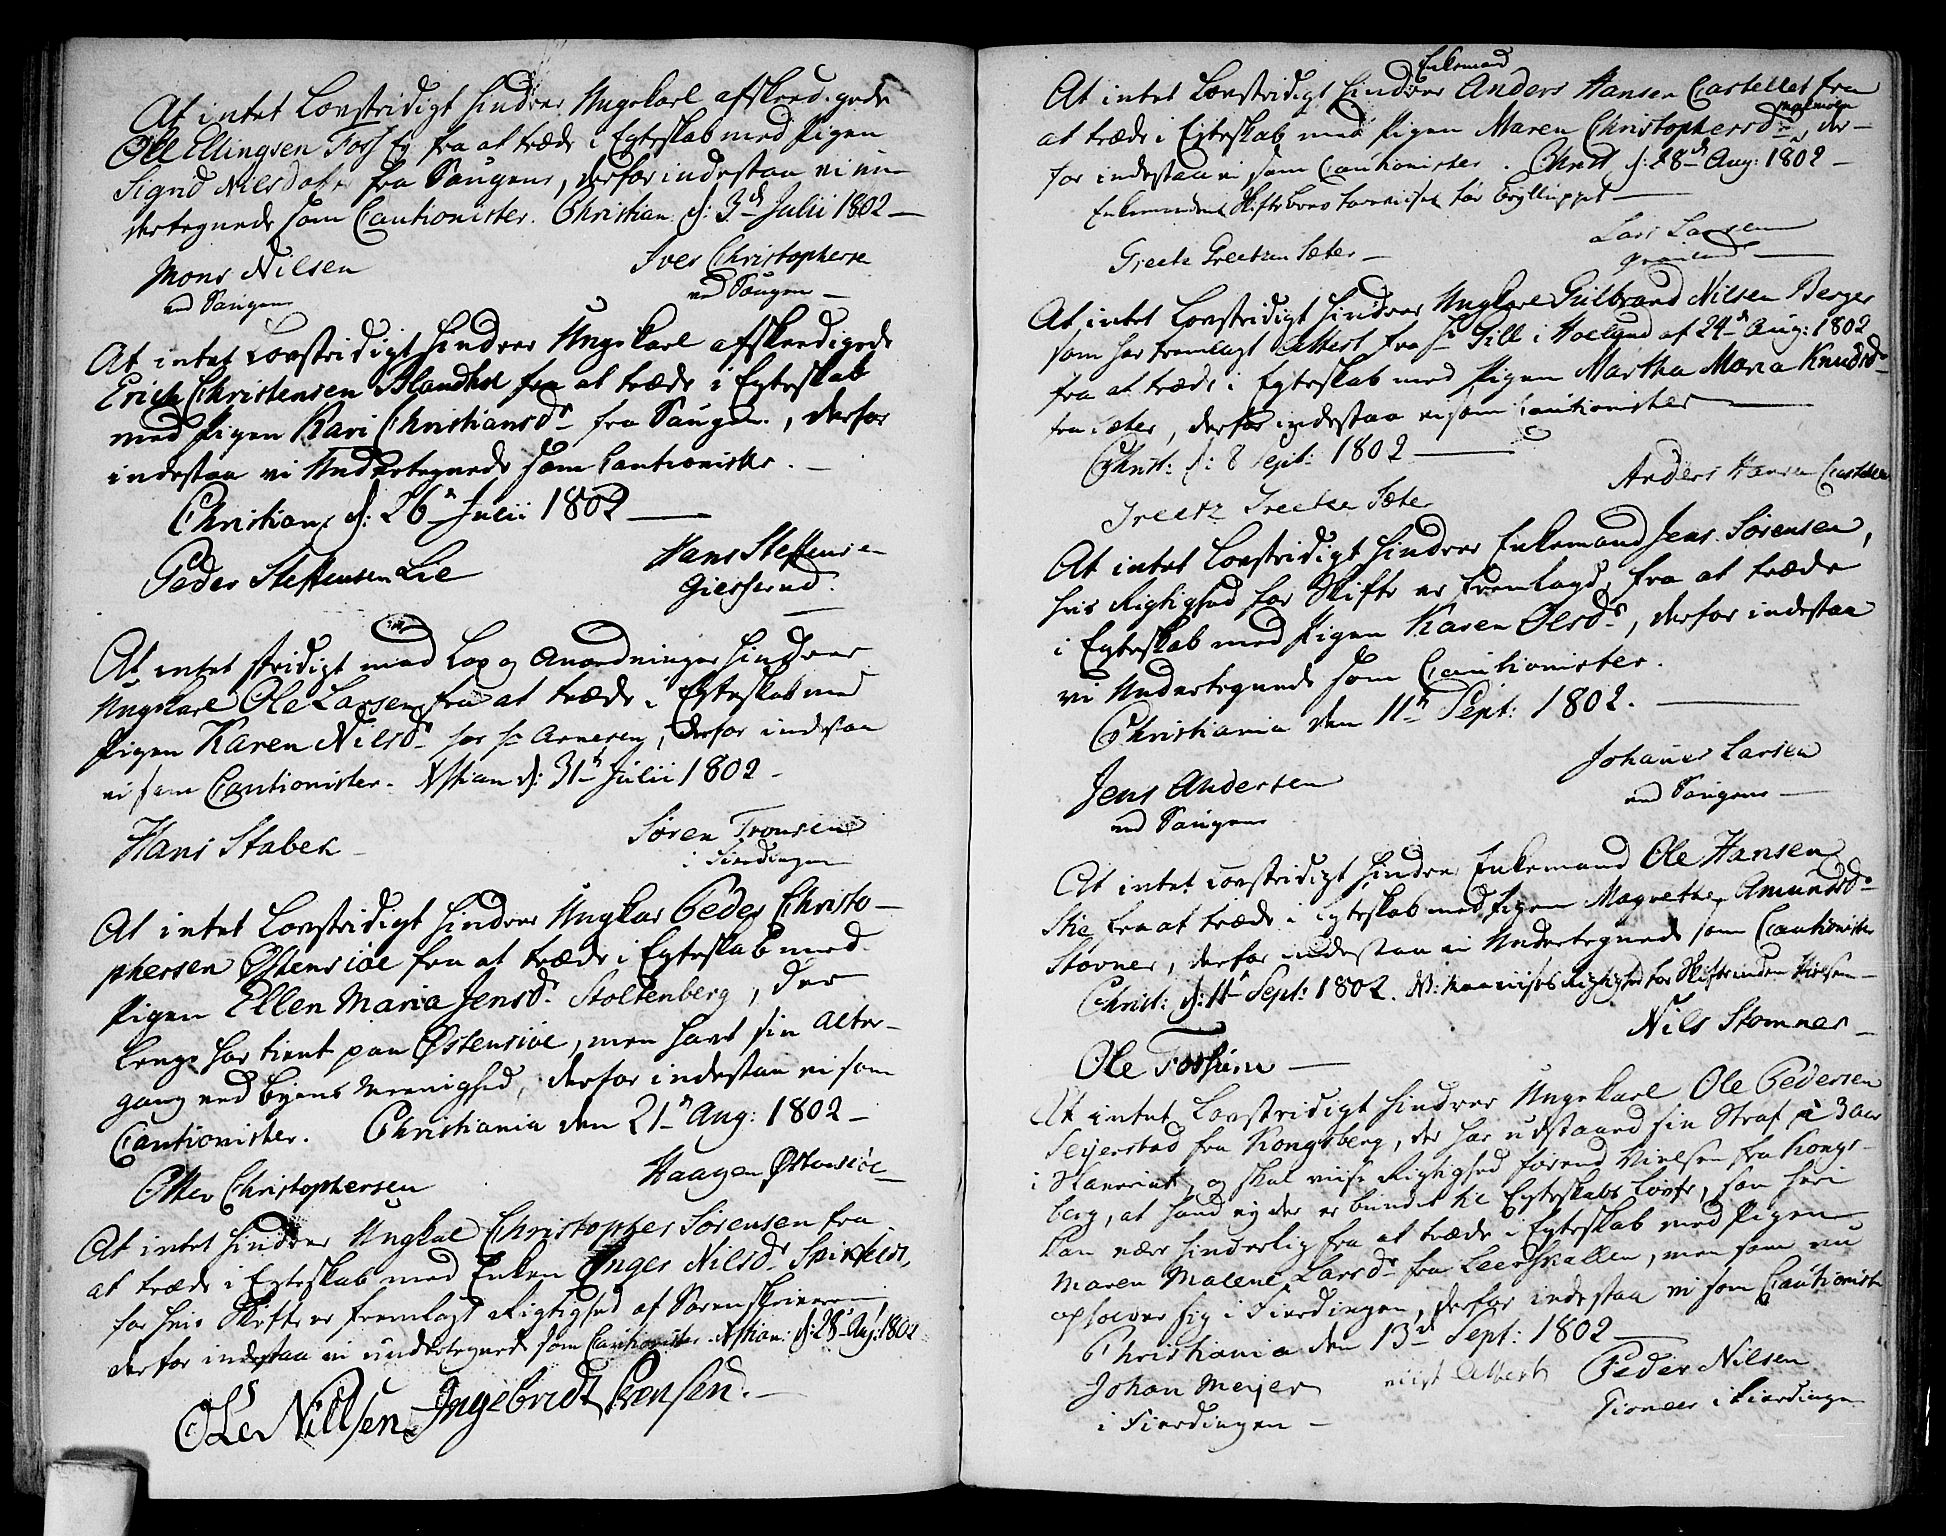 At intet Lovstridigt hindrer Ungekarl afskeed: gede
Ole Ellingsen Foss Ey fra at træde i Egteskab med Pigen
Sigrid Nilsdater fra Saugene, derfor indestaa vi un-
dertegnede som Cautionister. Christian: d: 3d Julii 1802 —
Mons Nilsen
ved Saugene
Iver Christophersen
ved Saugene —
At intet Lovstridigt hindrer Ungekarl afskeedigede
Erich Christensen fra at træde i Egteskab
med Pigen Kari Christiansdr fra Saugene, derfor
indestaa vi Undertegnede som Cautionister. —
Christiania d: 26 Julii 1802 —
Peder Steffensen Lie
Hans Steffensen
Gierserud.
At intet stridigt mod Lov og Anordninger hindrer
Ungekarl Ole Larsen fra at træde i Egteskab med
Pigen Karen Nilsdr hos Hr Arnesen, derfor indestaa
vi som Cautionister. Xstian d: 31te Julii 1802 —
Hans Stabek —
Søren Tronsen
i Fierdingen
At intet Lovstridigt hindrer Ungkar Peder Christo-
phersen Østensiøe fra at træde i Egteskab med
Pigen Ellen Maria Jensdr Stoltenberg, der
lenge har tient paa Østensiøe, men havt sin Alter-
gang ved Byens Meenighed, derfor indestaa vi som
Cautionister. Christiania den 21de Aug: 1802 —
Otter Christophersen
Haagen Østensiøe —
At intet hindrer Ungkarl Christopher Sørensen fra
at træde i Egteskab med Enken Inger Nilsdr
for hvis Skifte er fremlagt Rigtighed af Sorenskriveren
derfor indestaa vi undertegnede som Cautionister. Xstian: d: 28 Aug: 1802
OLe Nillsen Ingebridt Svensen. —
Enkemand
At intet Lovstridigt hindrer Anders Hansen Castellet fra
at træde i Egteskab med Pigen Maren Christophersdr, der-
for indestaa vi som Cautionister. Christ d: 28de Aug: 1802 —
Enkemandens Skiftebrev foreviises før Brylluppet —
Sæter —
Lars Larsen
Grønland —
At intet Lovstridigt hindrer Ungkarl Gulbrand Nilsen Berger
som har fremlagt Attest fra Hr Gill i Høeland af 24de Aug: 1802
fra at træde i Egteskab med Pigen Martha Maria Knudsdr
fra Sæter, derfor indestaa vi som Cautionister —
Christ: d: 8 Sept: 1802 —
Anders Hansen Castellet
Sæter
At intet Lovstridigt hindrer Enkemand Jens Sørensen,
hvis Rigtighed for Skifte er fremlagd, fra at træde
i Egteskab med Pigen Karen Olsdr, derfor indestaa
vi Undertegnede som Cautionister.
Christiania den 11te Sept: 1802. —
Jens Andersen
ved Saugene
Johanes Larsen
ved Saugene —
At intet Lovstridigt hindrer Enkemand Ole Hansen
Skie fra at træde i Egteskab med Pigen Magrethe Amundsdr
Stovner, derfor indestaa vi Undertegnede som Cautionister
Christ: d: 11te Sept: 1802. NB: maa viises Rigtighed for Skifte inden Vielsen —
Nils Stomner —
Ole —
At intet Lovstridigt hindrer Ungekarl Ole Pedersen
Seyerstad fra Kongsberg, der har udstaaed sin Straf i 3 aar
i Slaveriet, og skal viise Rigtighed forend Vielsen fra Kongs-
berg, at hand ey der er bundet til Egteskabs Løvte, som heri
kan være hinderlig fra at træde i Egteskab med Pigen
Maren Malene Larsdr fra Leerskallen, men som nu
opholder sig i Fierdingen, derfor indestaa vi som Cautionister
Christiania den 13de Sept: 1802 —
Johan Meijer
i Fierdingen —
viist Attest
Peder Nilsen
Pioneer i Fierdingen